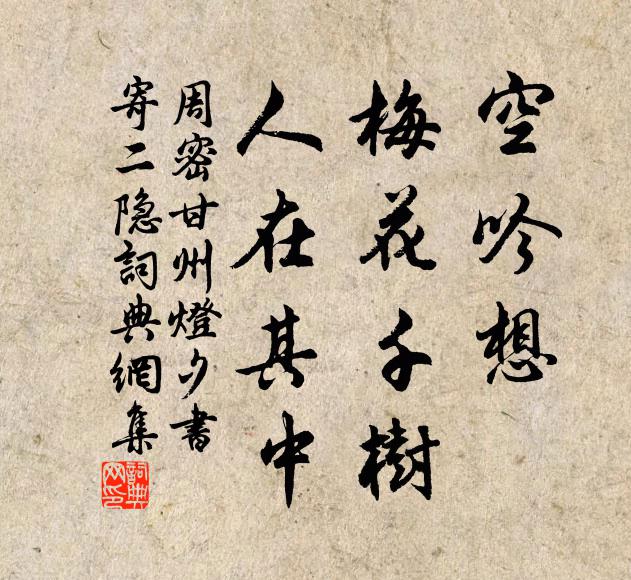 空吟想
梅花千樹
人在其中
周密甘州燈夕書
寄二隐詞典網集
詞典网印